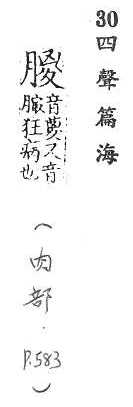 30四聲篇海
音又音
狂病也
(肉部．P.583)